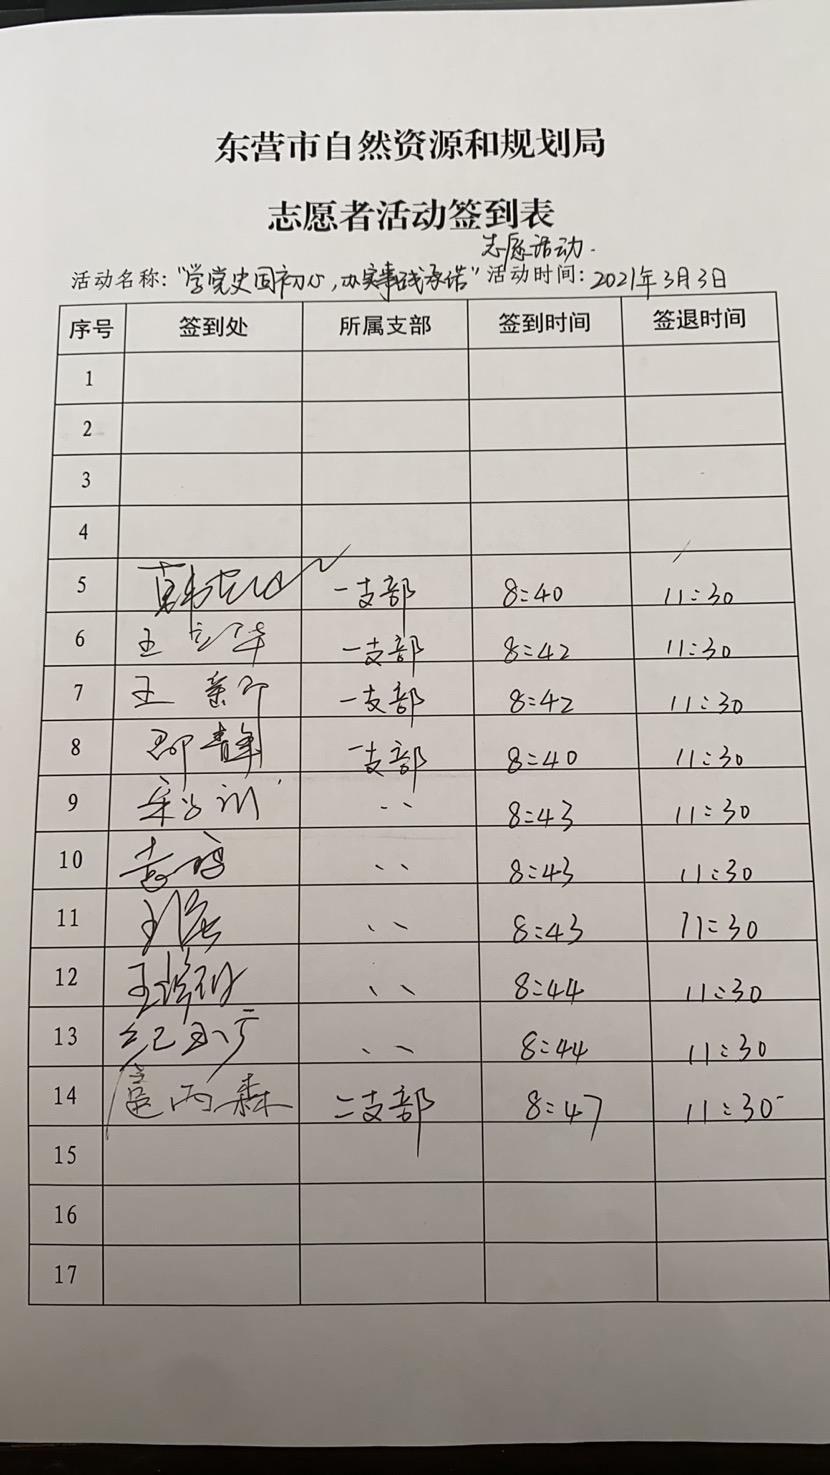 东营市自然资源和规划局
志愿者活动签到表
志愿活动.
活动名称："学党史固初心，办实事践承诺" 活动时间：2021年3月3日
序号 签到处 所属支部 签到时间 签退时间
1
2
3
4
5 一支部 8:40 11:30
6 王立华 一支部 8:42 11:30
7 王 一支部 8:42 11:30
8 邵静 一支部 8:40 11:30
9 8:43 11:30
10 8:43 11:30
11 8:43 11:30
12 王 8:44 11:30
13 纪 8:44 11:30
14 丙森 二支部 8:47 11:30
15
16
17